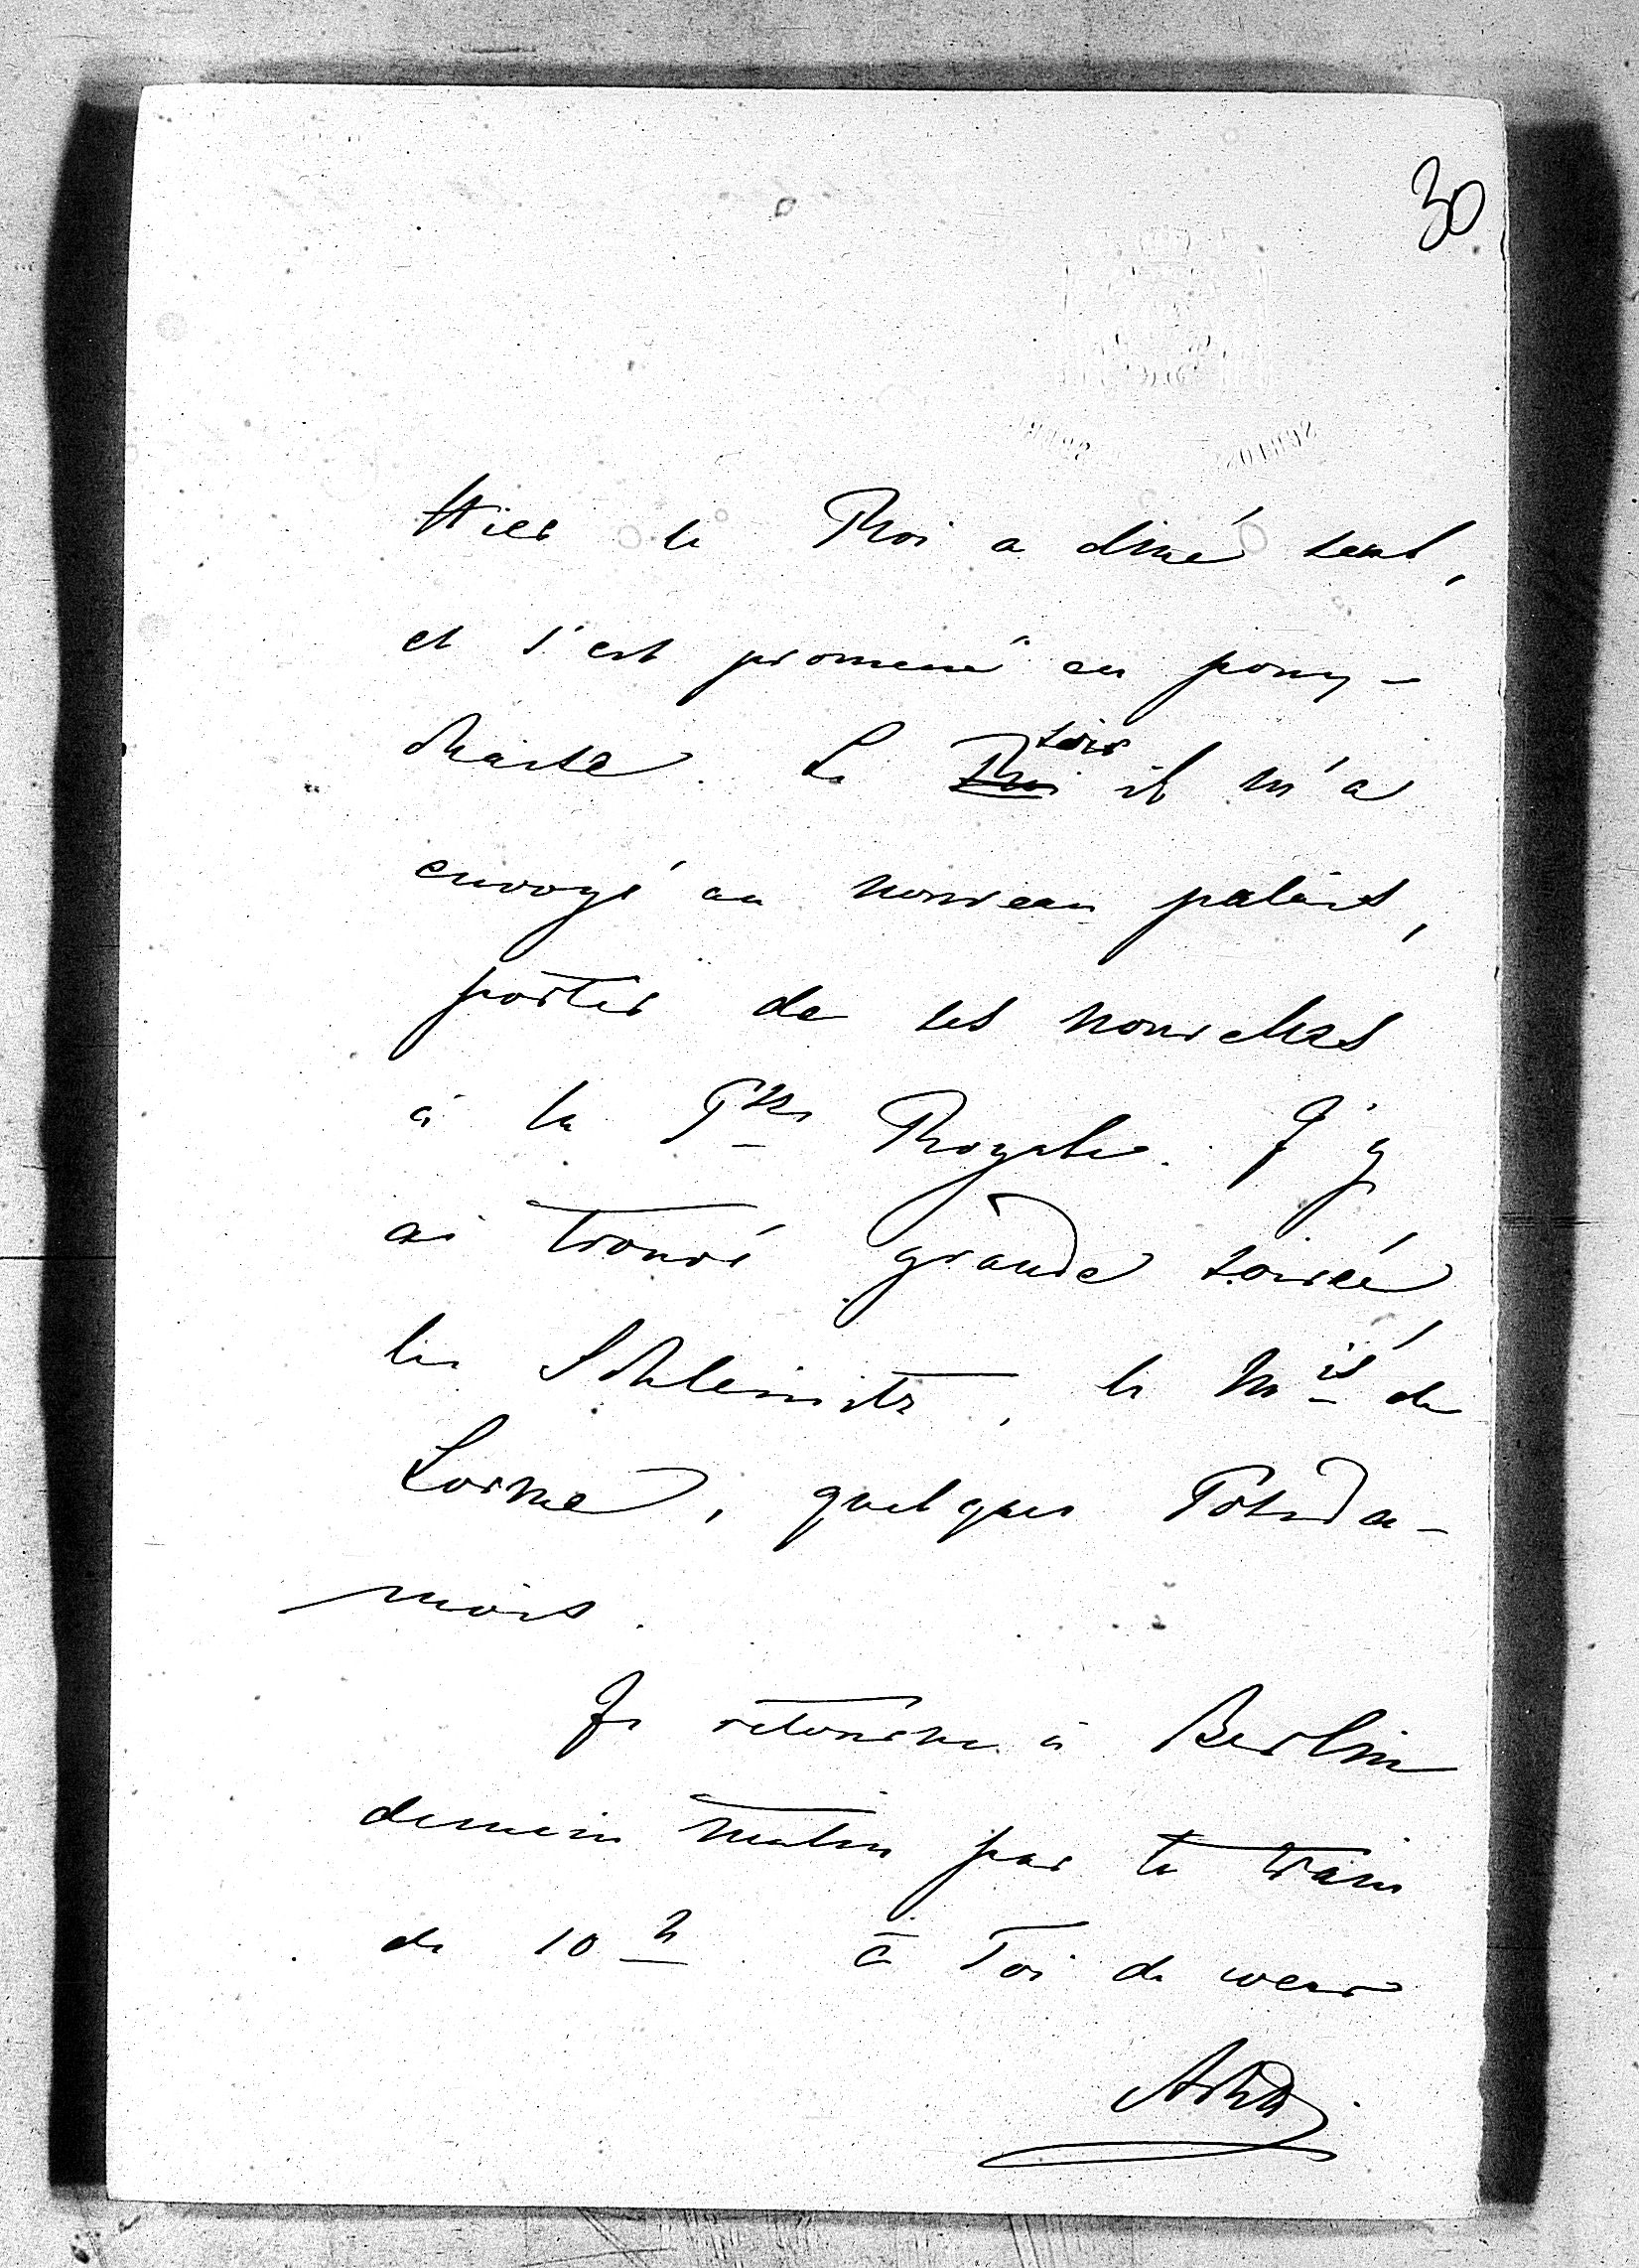 30
Hier le Roi a diné seul,
et s'est promené en pony-
chaise. Le ~~Roi~~ soir il m'a
envoyé au nouveau palais,
porter de ses nouvelles
à la Psse Royale. J'y
ai trouvé grande soirée
les Schleinitz, le Mis de
Lorne, quelques Potsda-
mois.
Je retourne à Berlin
demain matin par le train
de 10 h. à Toi de cœur